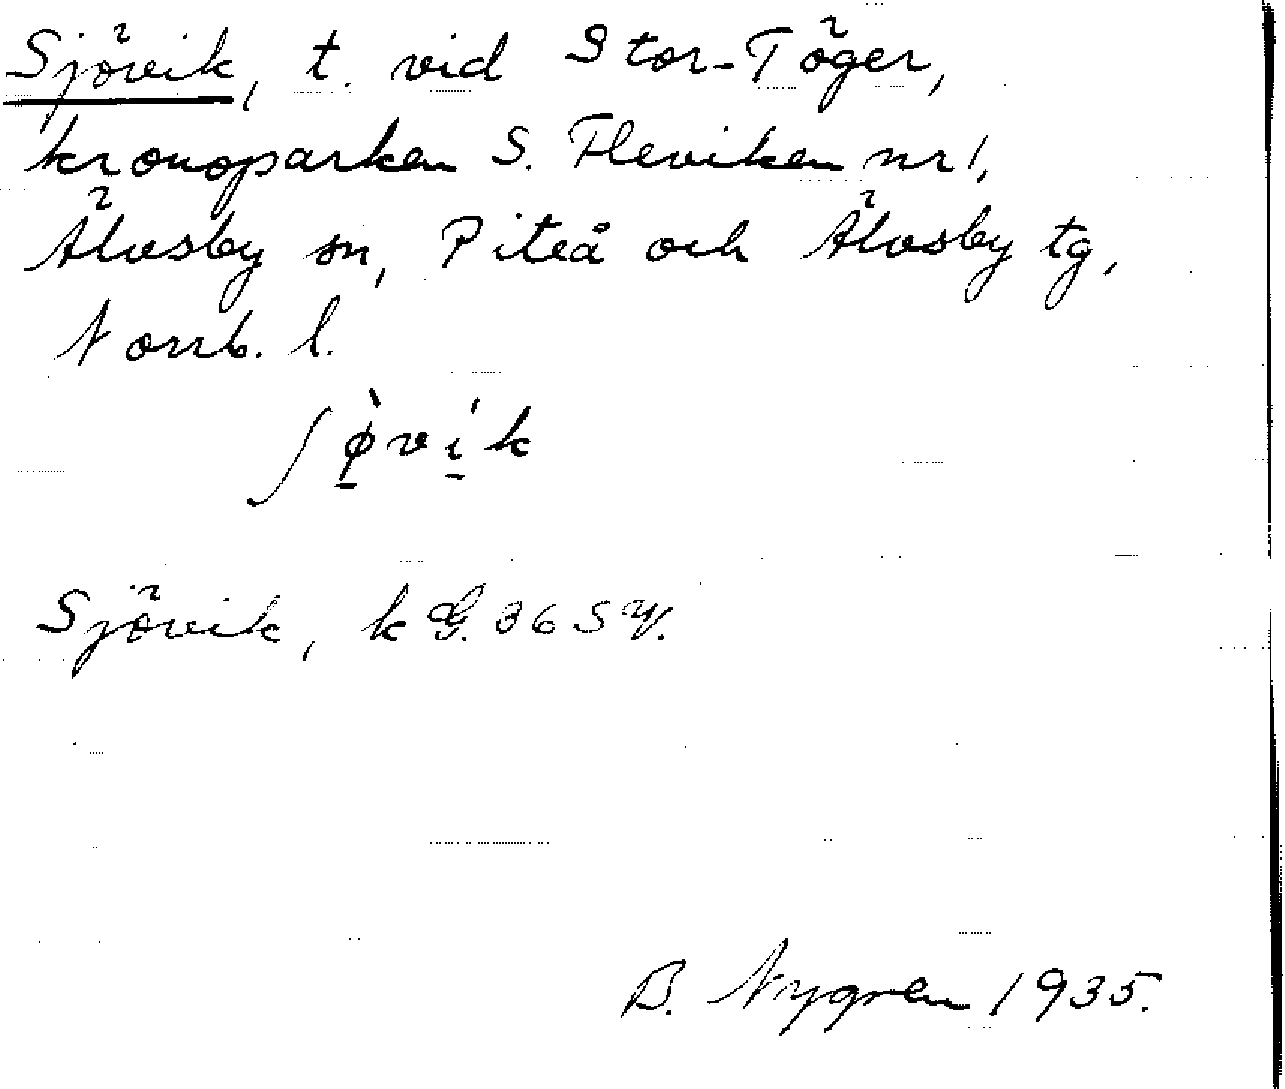 Sjövik, t. vid Stor-Töger,
kronoparken S. Fleviken nr 1,
Älvsby sn, Piteå och Älvsby tg,
Norrb. l.
ʃø̠̀ví̠k
Sjövik, k G. 36 S
B. Nygren 1935.